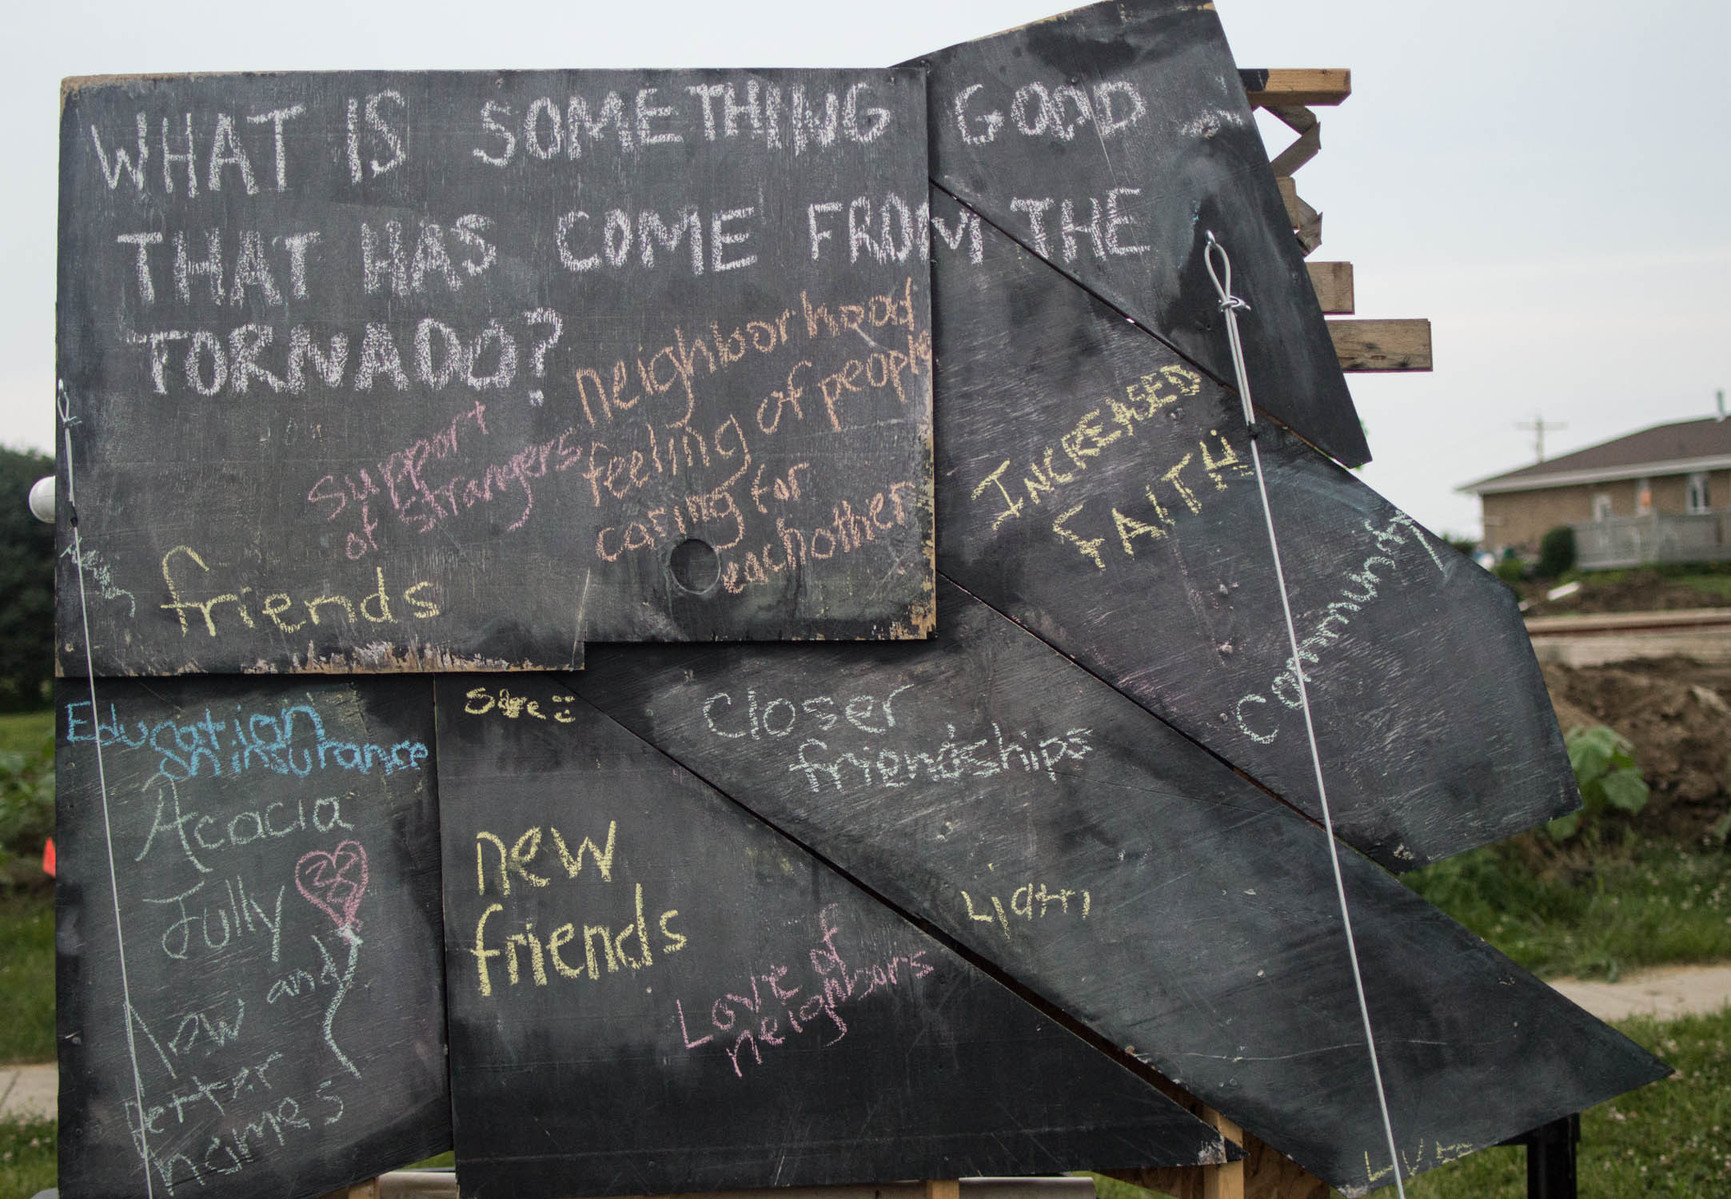 WHAT IS SOMETHING GOOD
THAT HAS COME FROM THE
TORNADO?
neighborhood
feeling of people
caring for
eachother
support
of strangers
friends
INCREASED
FAITH
Community
Education
on insurance
Acacia
Jully
and
new
better
homes
new
friends
Closer
friendships
Love of
neighbors